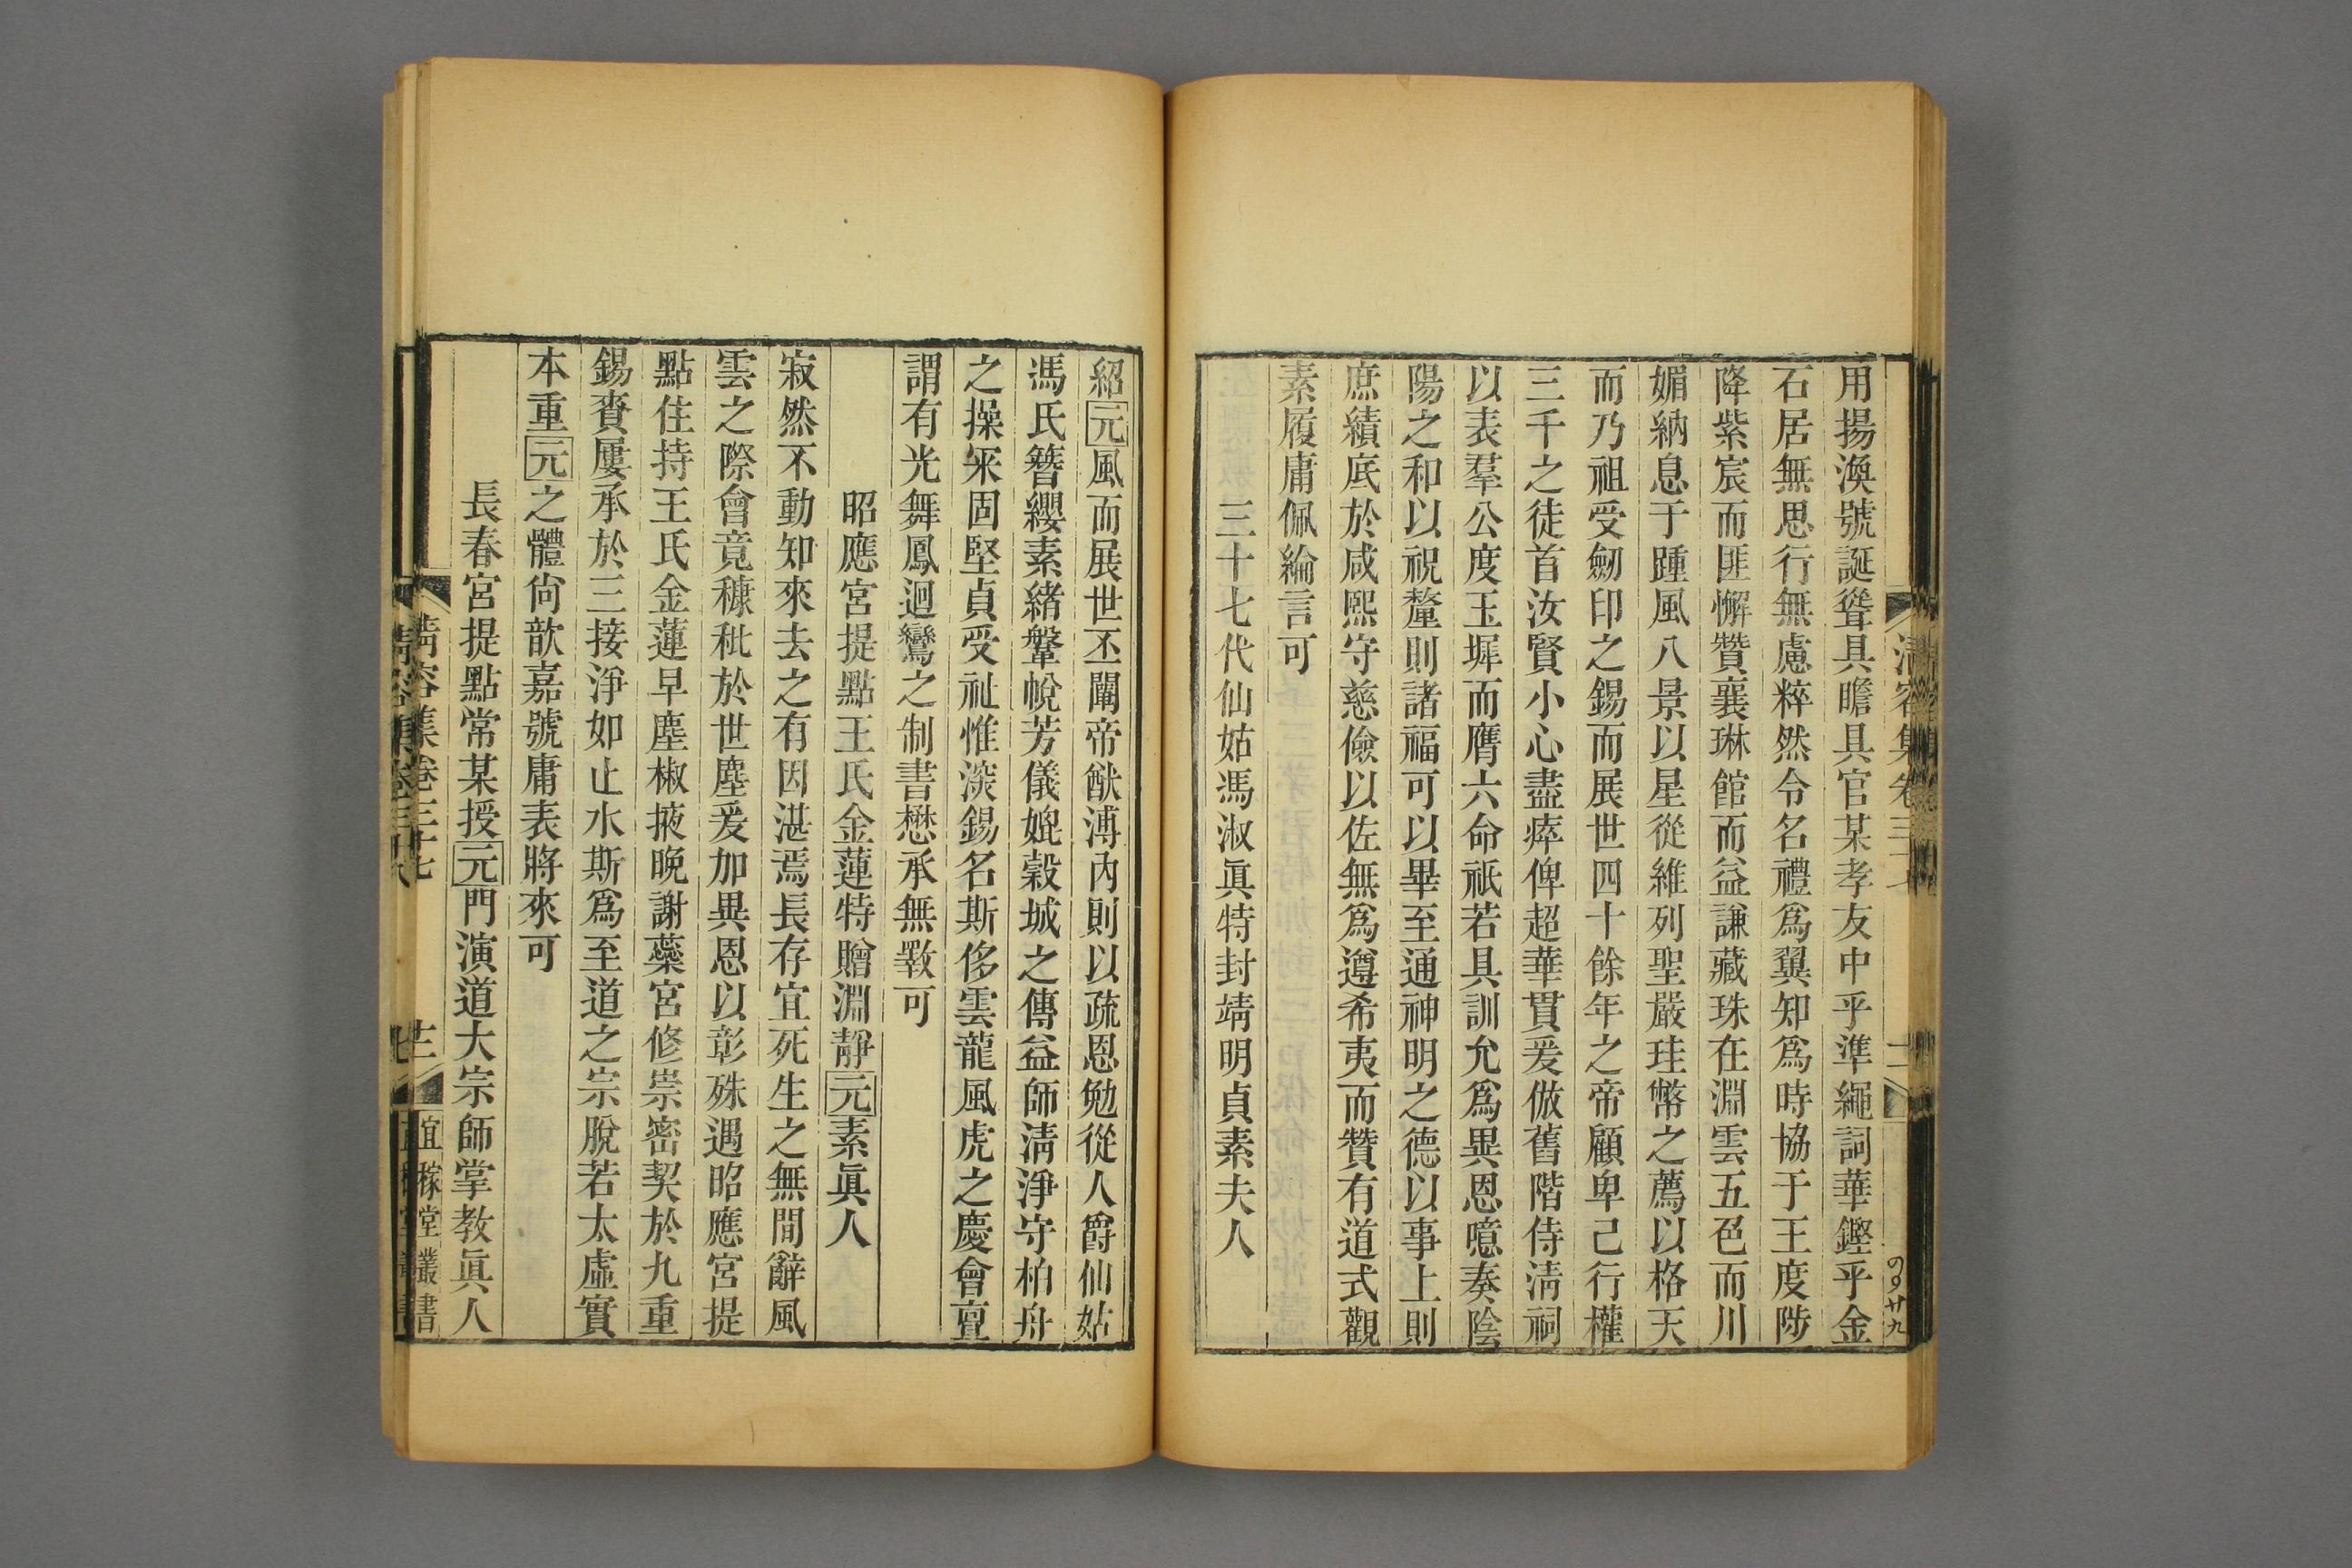 用揚渙號誕聳具瞻具官某孝友中乎準繩詞華鏗乎金
石居無思行無慮粹然令名禮爲翼知爲時協于王度陟
降紫宸而匪懈贊襄琳館而益謙藏珠在淵雲五色而川
媚納息于踵風八景以星從維列聖嚴珪幣之薦以格天
而乃祖受劒印之錫而展世四十餘年之帝顧卑己行權
三千之徒首汝賢小心盡瘁俾超華貫爰倣舊階侍淸祠
以表羣公度玉墀而膺六命祇若具訓允爲異恩噫奏陰
陽之和以祝釐則諸福可以畢至通神明之德以事上則
庶績底於咸熙守慈儉以佐無爲遵希夷而贊有道式觀
素履庸佩綸言可
三十七代仙姑馮淑眞特封靖明貞素夫人
紹元風而展世丕闡帝猷溥內則以疏恩勉從人爵仙姑
馮氏簪纓素緒鞶帨芳儀婉穀城之傳益師淸淨守柏舟
之操冞固堅貞受祉惟深錫名斯侈雲龍風虎之慶會亶
謂有光舞鳳迴鸞之制書懋承無斁可
昭應宮提點王氏金蓮特贈淵靜元素眞人
寂然不動知來去之有因湛焉長存宜死生之無間辭風
雲之際會竟穅秕於世塵爰加異恩以彰殊遇昭應宮提
點住持王氏金蓮早塵椒掖晩謝蘂宮修崇密契於九重
錫賚屢承於三接淨如止水斯爲至道之宗脫若太虛實
本重元之體尙歆嘉號庸表將來可
長春宮提點常某授元門演道大宗師掌教眞人
淸容集卷三十七
宜稼堂叢書